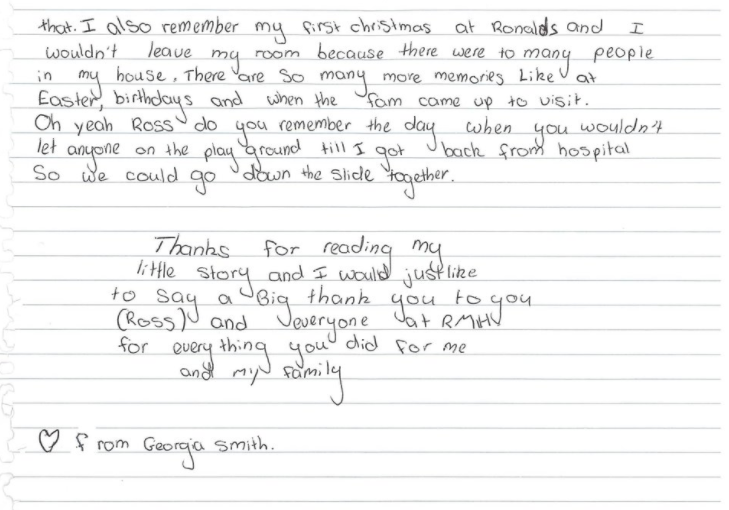 that. I also remember my first christmas at Ronalds and I
wouldn't leave my room because there were to many people
in my house. There are so many more memories Like at
Easter, birthdays and when the fam came up to visit.
Oh yeah Ross do you remember the day when you wouldn't
let anyone on the play ground till I got back from hospital
So we could go down the slide together.
Thanks for reading my
little story and I would just like
to say a Big thank you to you
(Ross) and everyone at RMHV
for everything you did for me
and my family
♡ from Georgia Smith.